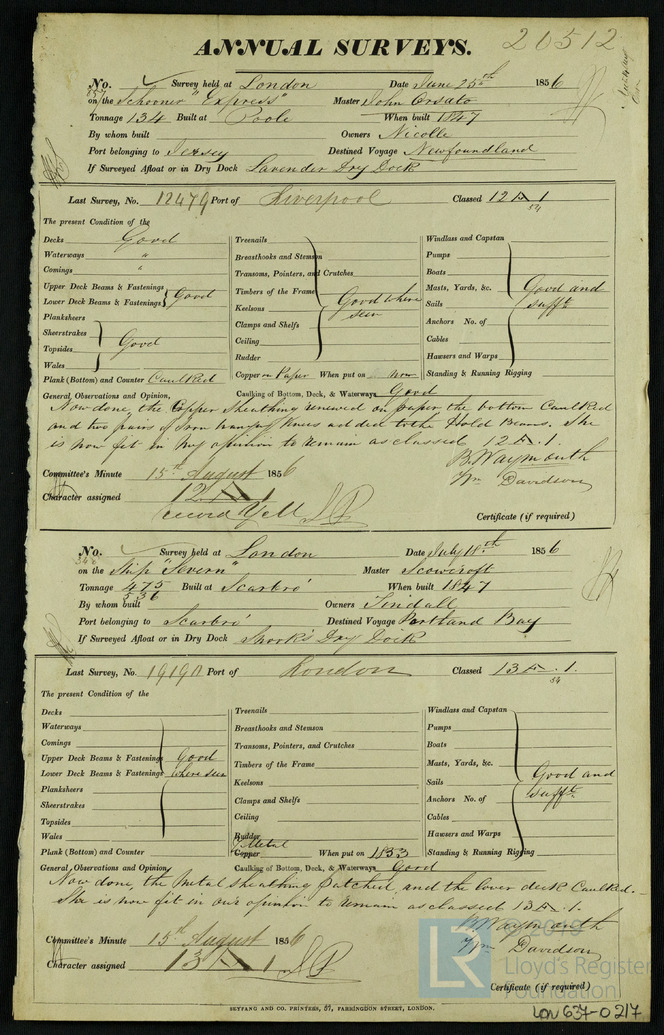 ANNUAL SURVEYS. 20512
No. Survey held at London Date June 25th 1856
on the Schooner "Express" Master John Orsato
Tonnage 134 Built at Poole When built 1847
By whom built Owners Nicolle
Port belonging to Jersey Destined Voyage Newfoundland
If Surveyed Afloat or in Dry Dock Lavender Dry Dock
Last Survey, No. 12479 Port of Liverpool Classed 12 A 1
54
The present Condition of the
Decks Good
Waterways "
Comings "
Upper Deck Beams & Fastenings
Lower Deck Beams & Fastenings Good
Planksheers
Sheerstrakes
Topsides Good
Wales
Plank (Bottom) and Counter Caulked
Treenails
Breasthooks and Stemson
Transoms, Pointers, and Crutches
Timbers of the Frame
Keelsons Good where seen
Clamps and Shelfs
Ceiling
Rudder
Copper on Paper When put on now
Caulking of Bottom, Deck, & Waterways Good
Windlass and Capstan
Pumps
Boats
Masts, Yards, &c. Good and
Sails sufft
Anchors No. of
Cables
Hawsers and Warps
Standing & Running Rigging
General Observations and Opinion,
Now done, the Copper Sheathing renewed on paper the bottom Caulked
and two pairs of Iron hanging Knees added to the Hold Beams. She
is now fit in my opinion to remain as classed 12 A. 1.
B. Waymouth
Wm Davidson
Committee's Minute 15th August 1856
Character assigned 12 A 1
Certificate (if required)
No. Survey held at London Date July 18th 1856
on the Ship "Severn" Master Scowcroft
Tonnage 475 Built at Scarbro' When built 1847
536
By whom built Owners Tindall
Port belonging to Scarbro' Destined Voyage Portland Bay
If Surveyed Afloat or in Dry Dock Dry Dock
Last Survey, No. Port of London Classed 13 A. 1.
54
The present Condition of the
Decks
Waterways
Comings
Upper Deck Beams & Fastenings Good
Lower Deck Beams & Fastenings where seen
Planksheers
Sheerstrakes
Topsides
Wales
Plank (Bottom) and Counter
Treenails
Breasthooks and Stemson
Transoms, Pointers, and Crutches
Timbers of the Frame
Keelsons
Clamps and Shelfs
Ceiling
Rudder
Y Metal
Copper When put on 1853
Caulking of Bottom, Deck, & Waterways Good
Windlass and Capstan
Pumps
Boats
Masts, Yards, &c.
Sails Good and
Anchors No. of sufft
Cables
Hawsers and Warps
Standing & Running Rigging
General Observations and Opinion,
Now done, the Metal Sheathing patched, and the lower deck Caulked.
She is now fit in our opinion to remain as classed 13 A. 1.
B. Waymouth
Wm Davidson
Committee's Minute 15th August 1856
Character assigned 13 A 1
Certificate (if required)
SEYFANG AND CO. PRINTERS, 57, FARRINGDON STREET, LONDON.
LR
© 2018
Lloyd's Register
Foundation
LON 637-0217